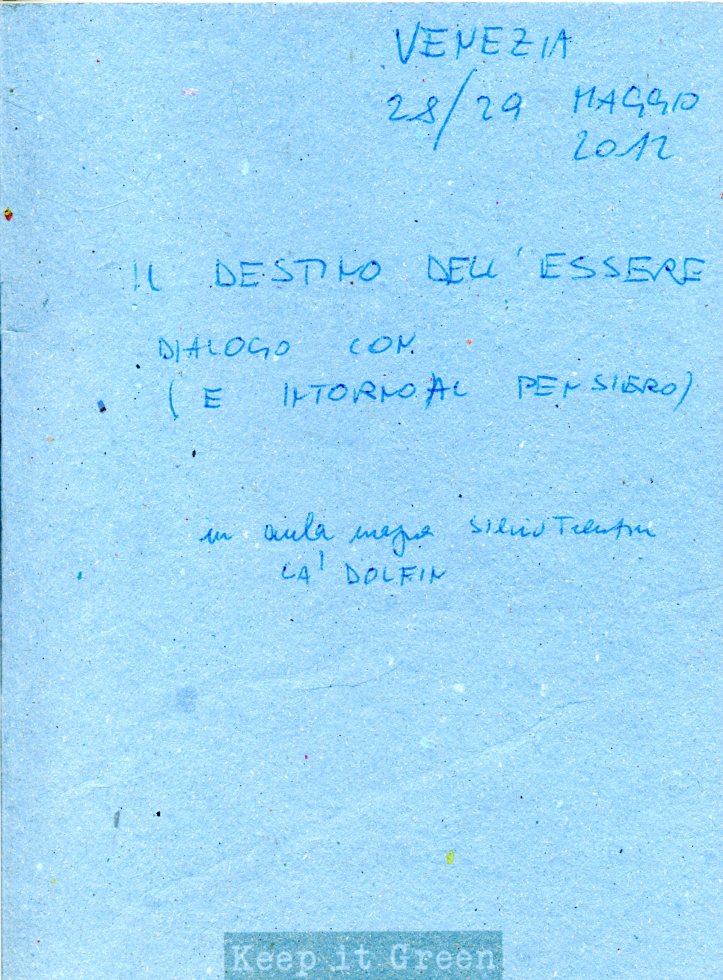 VENEZIA
28/29 MAGGIO
2012
IL DESTINO DELL'ESSERE
DIALOGO CON
(E INTORNO AL PENSIERO)
in aula magna Silvio Trentin
CA' DOLFIN
Keep it Green